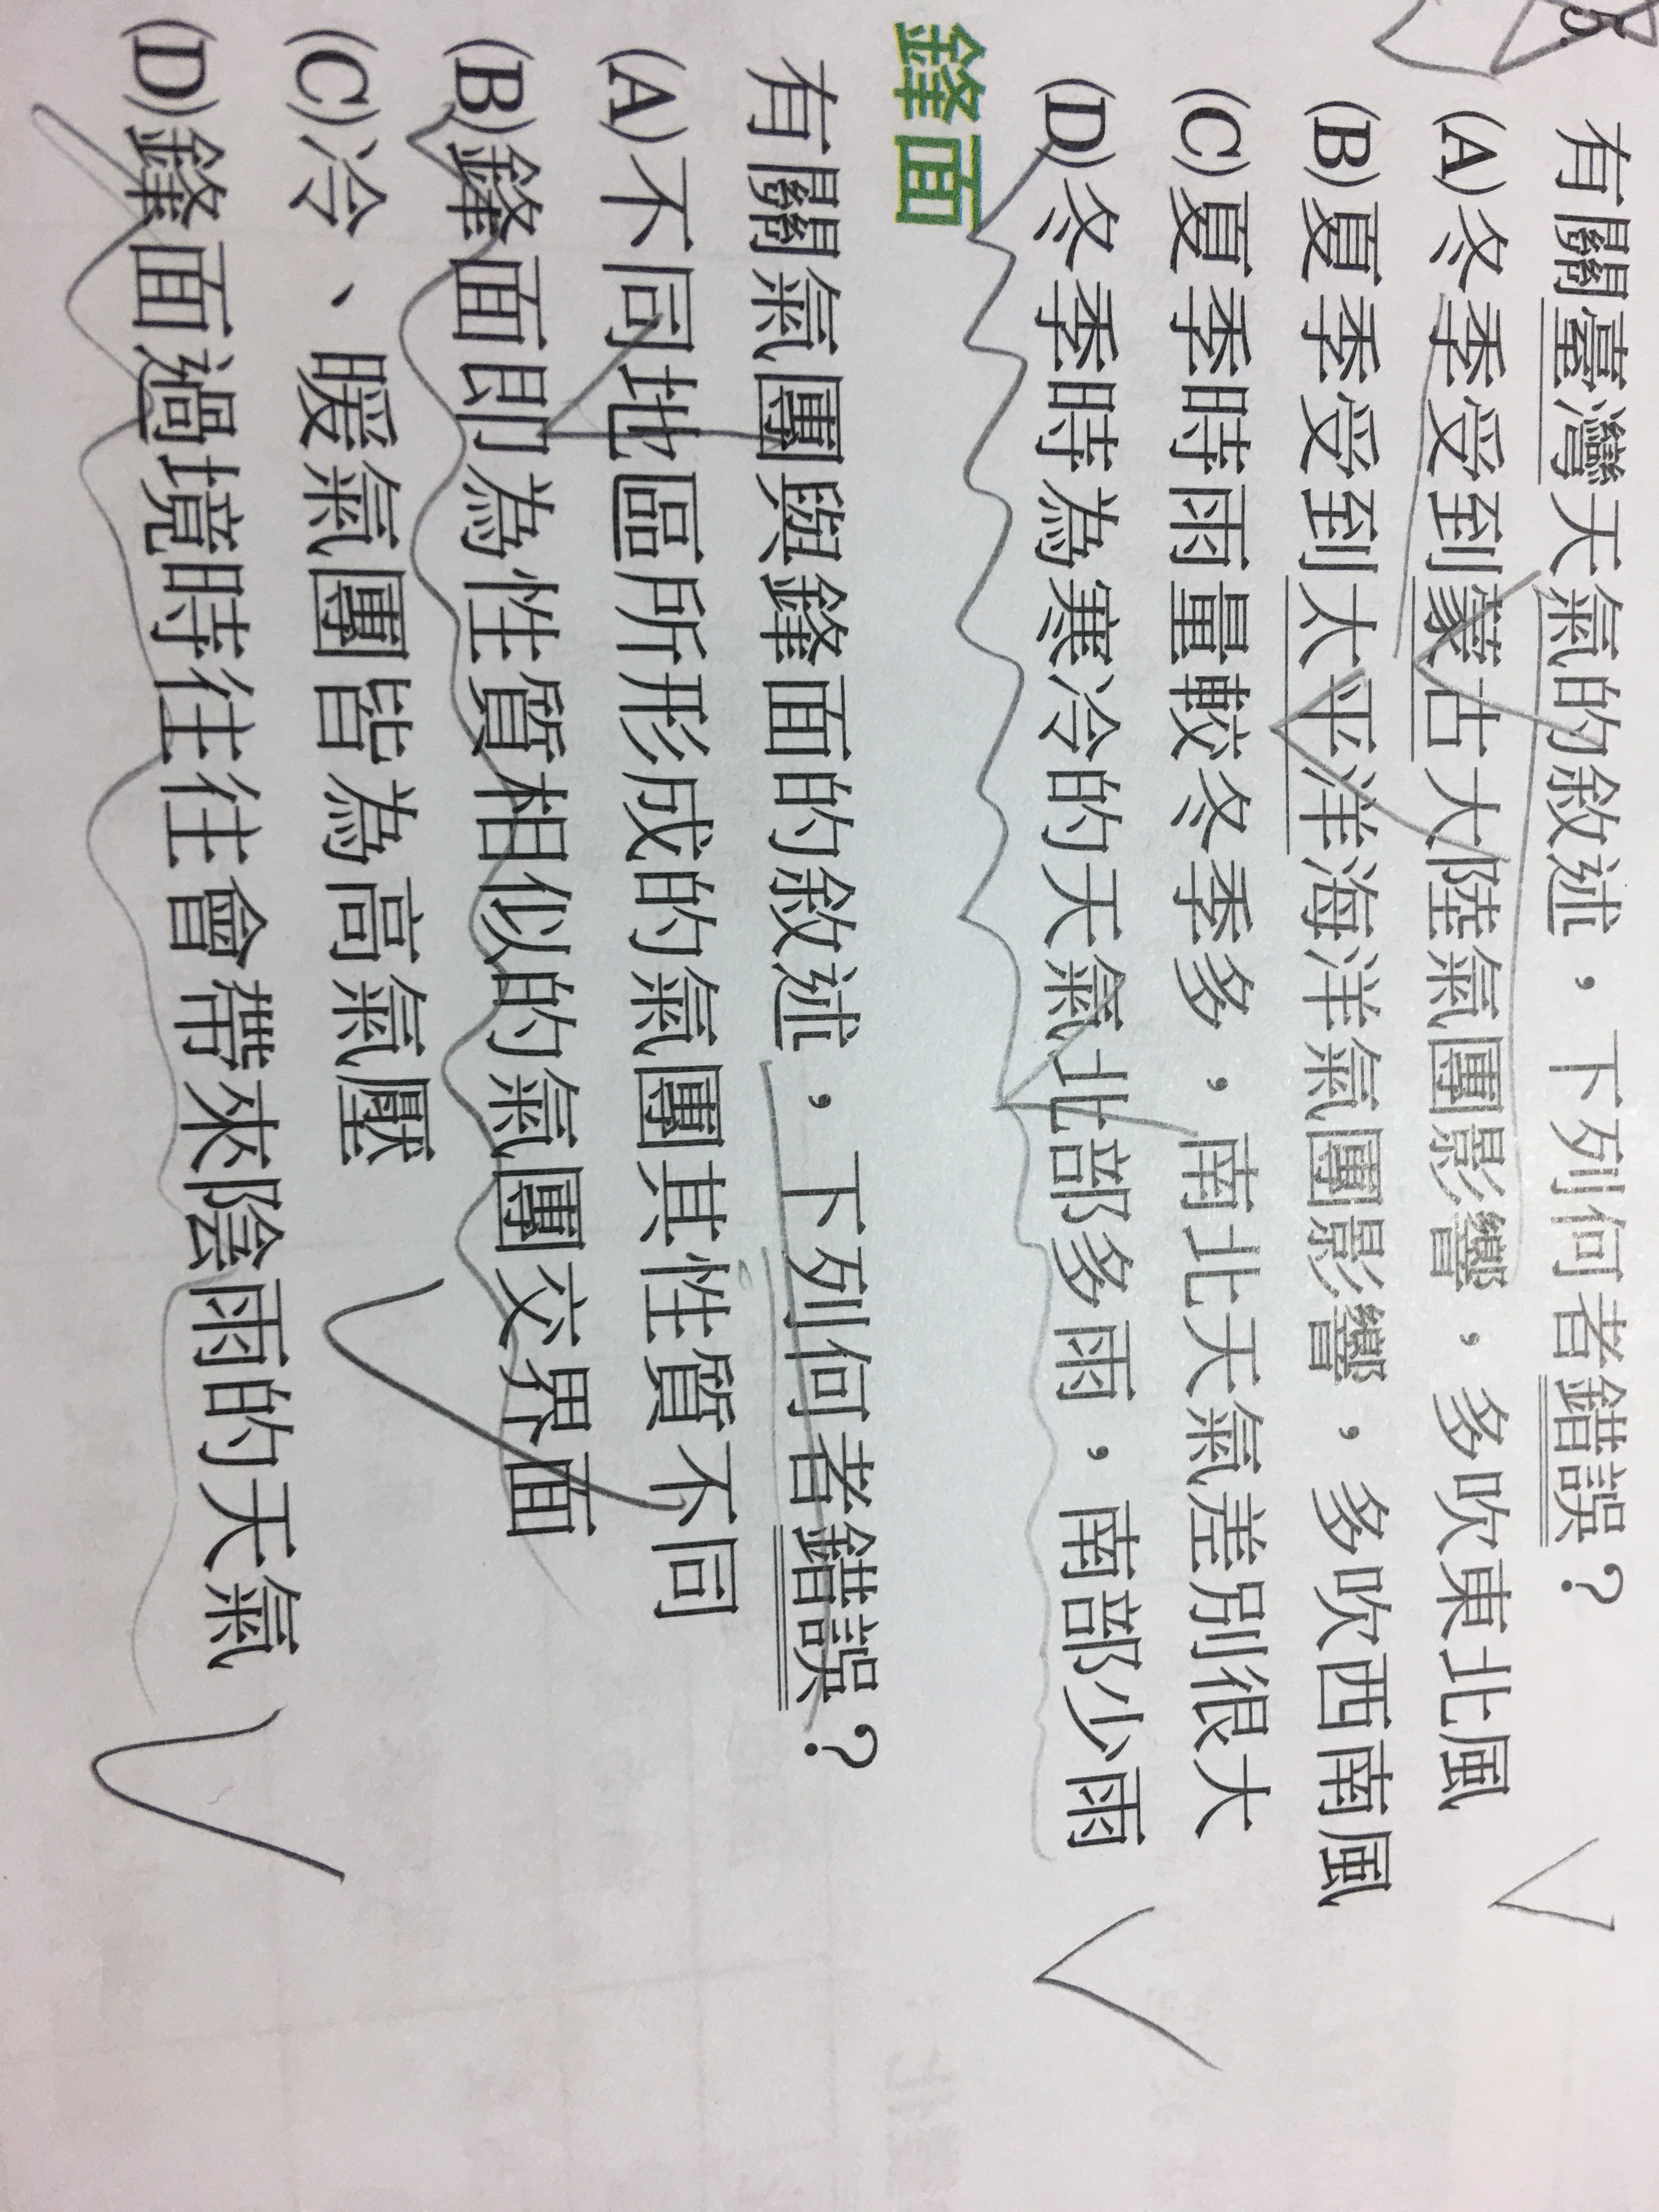 有關臺灣天氣的敘述，下列何者錯誤？
(A)冬季受到蒙古大陸氣團影響，多吹東北風
(B)夏季受到太平洋海洋氣團影響，多吹西南風
(C)夏季時雨量較冬季多，南北天氣差別很大
(D)冬季時為寒冷的天氣北部多雨，南部少雨
鋒面
有關氣團與鋒面的敘述，下列何者錯誤？
(A)不同地區所形成的氣團其性質不同
(B)鋒面即為性質相似的氣團交界面
(C)冷、暖氣團皆為高氣壓
(D)鋒面過境時往往會帶來陰雨的天氣